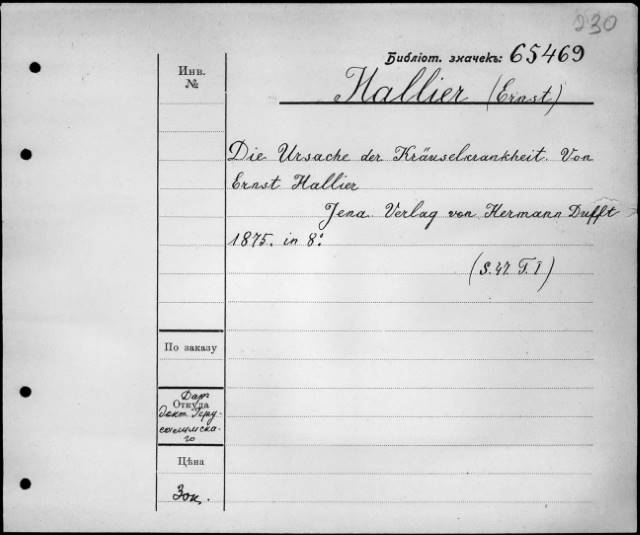 230
Библіот. значекъ: 65469
Инв.
№
Hallier (Ernst)
Die Ursache der Kräuselkrankheit. Von
Ernst Hallier
Jena. Verlag von Hermann Dufft
1875. in 8º
(S. 47. T. I)
По заказу
Откуда
Даръ
докт. Іеру-
салимска-
го
Цѣна
30 к.